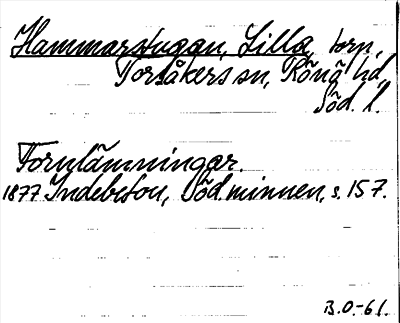 Hammarstugan, Lilla, torp,
Torsåkers sn, Rönö hd,
Söd. l.
Fornlämningar.
1877 Indebetou, Söd. minnen, s. 157.
B.O.-61.